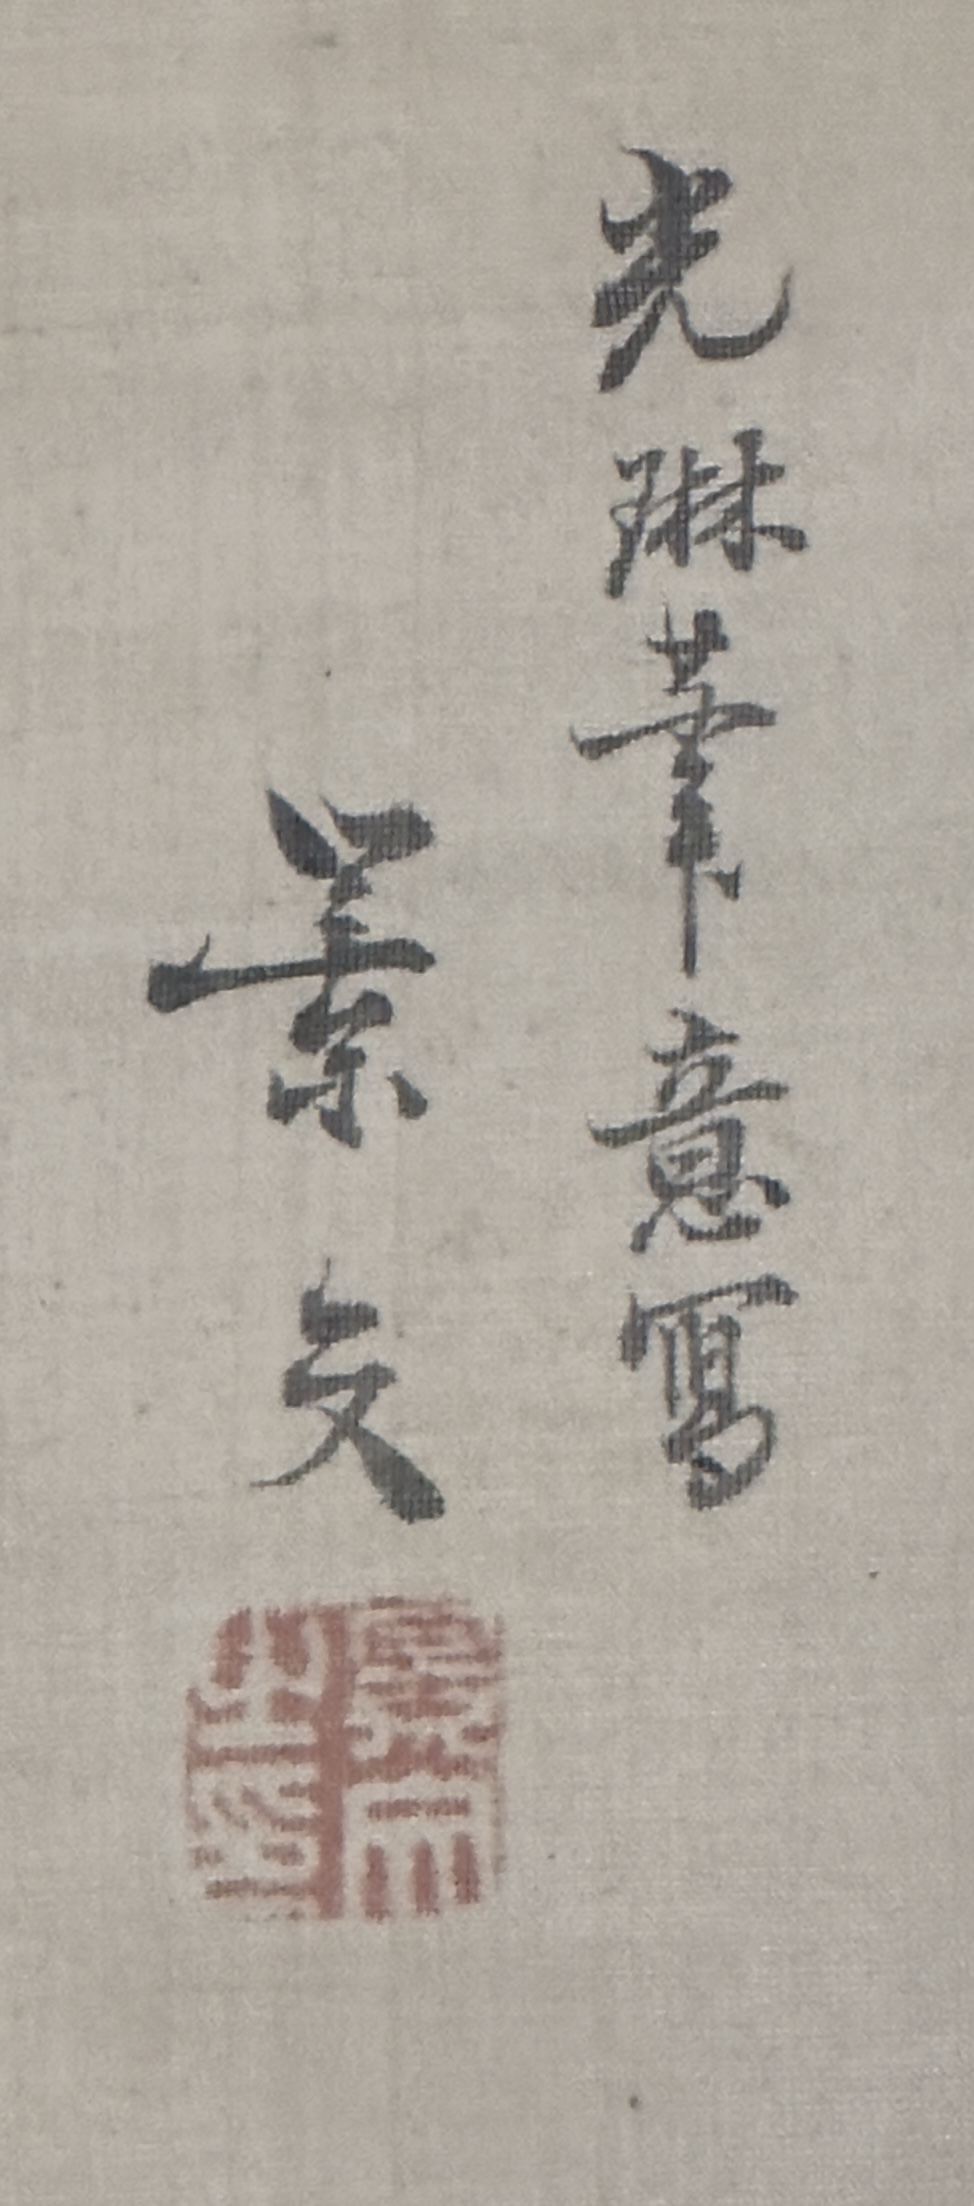 光琳筆意寫
景文